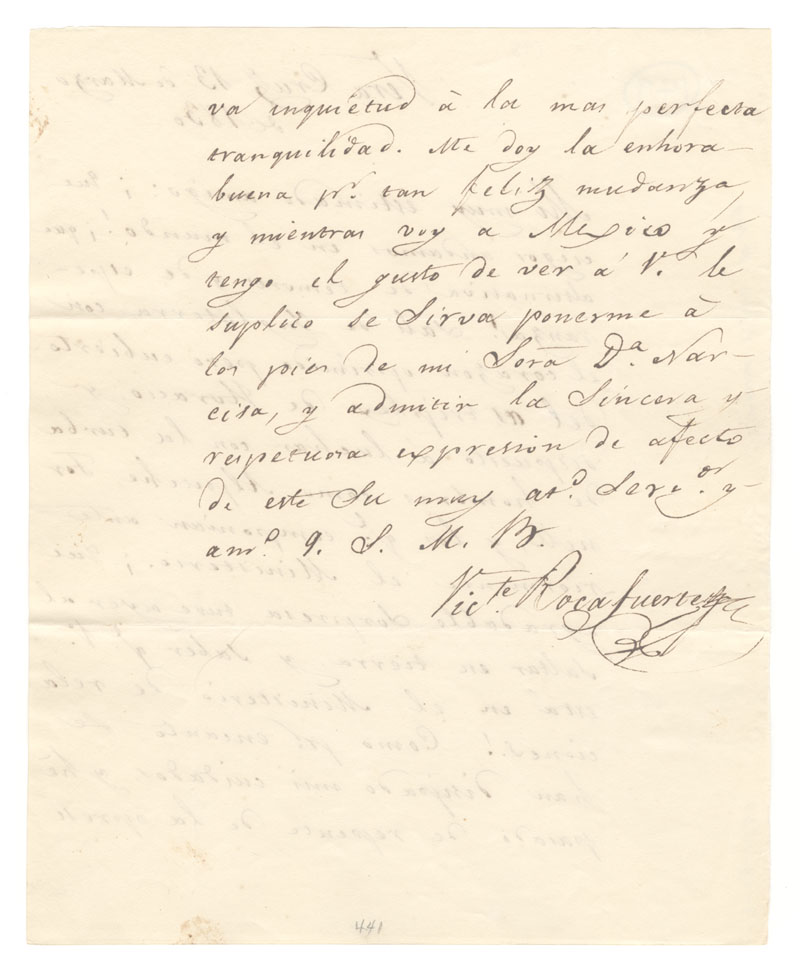 va inquietud à la mas perfecta
tranquilidad. Me doy la enhora-
buena pr. tan feliz mudanza,
y mientras voy a Mexico y
tengo el gusto de ver á V. le
suplico se sirva ponerme à
los pies de mi Sora Da. Nar-
cisa, y admitir la sincera y
respetuosa expresion de afecto
de este su muy ato. Seror. y
amo. Q. S. M. B.
Victe. Rocafuerte
441